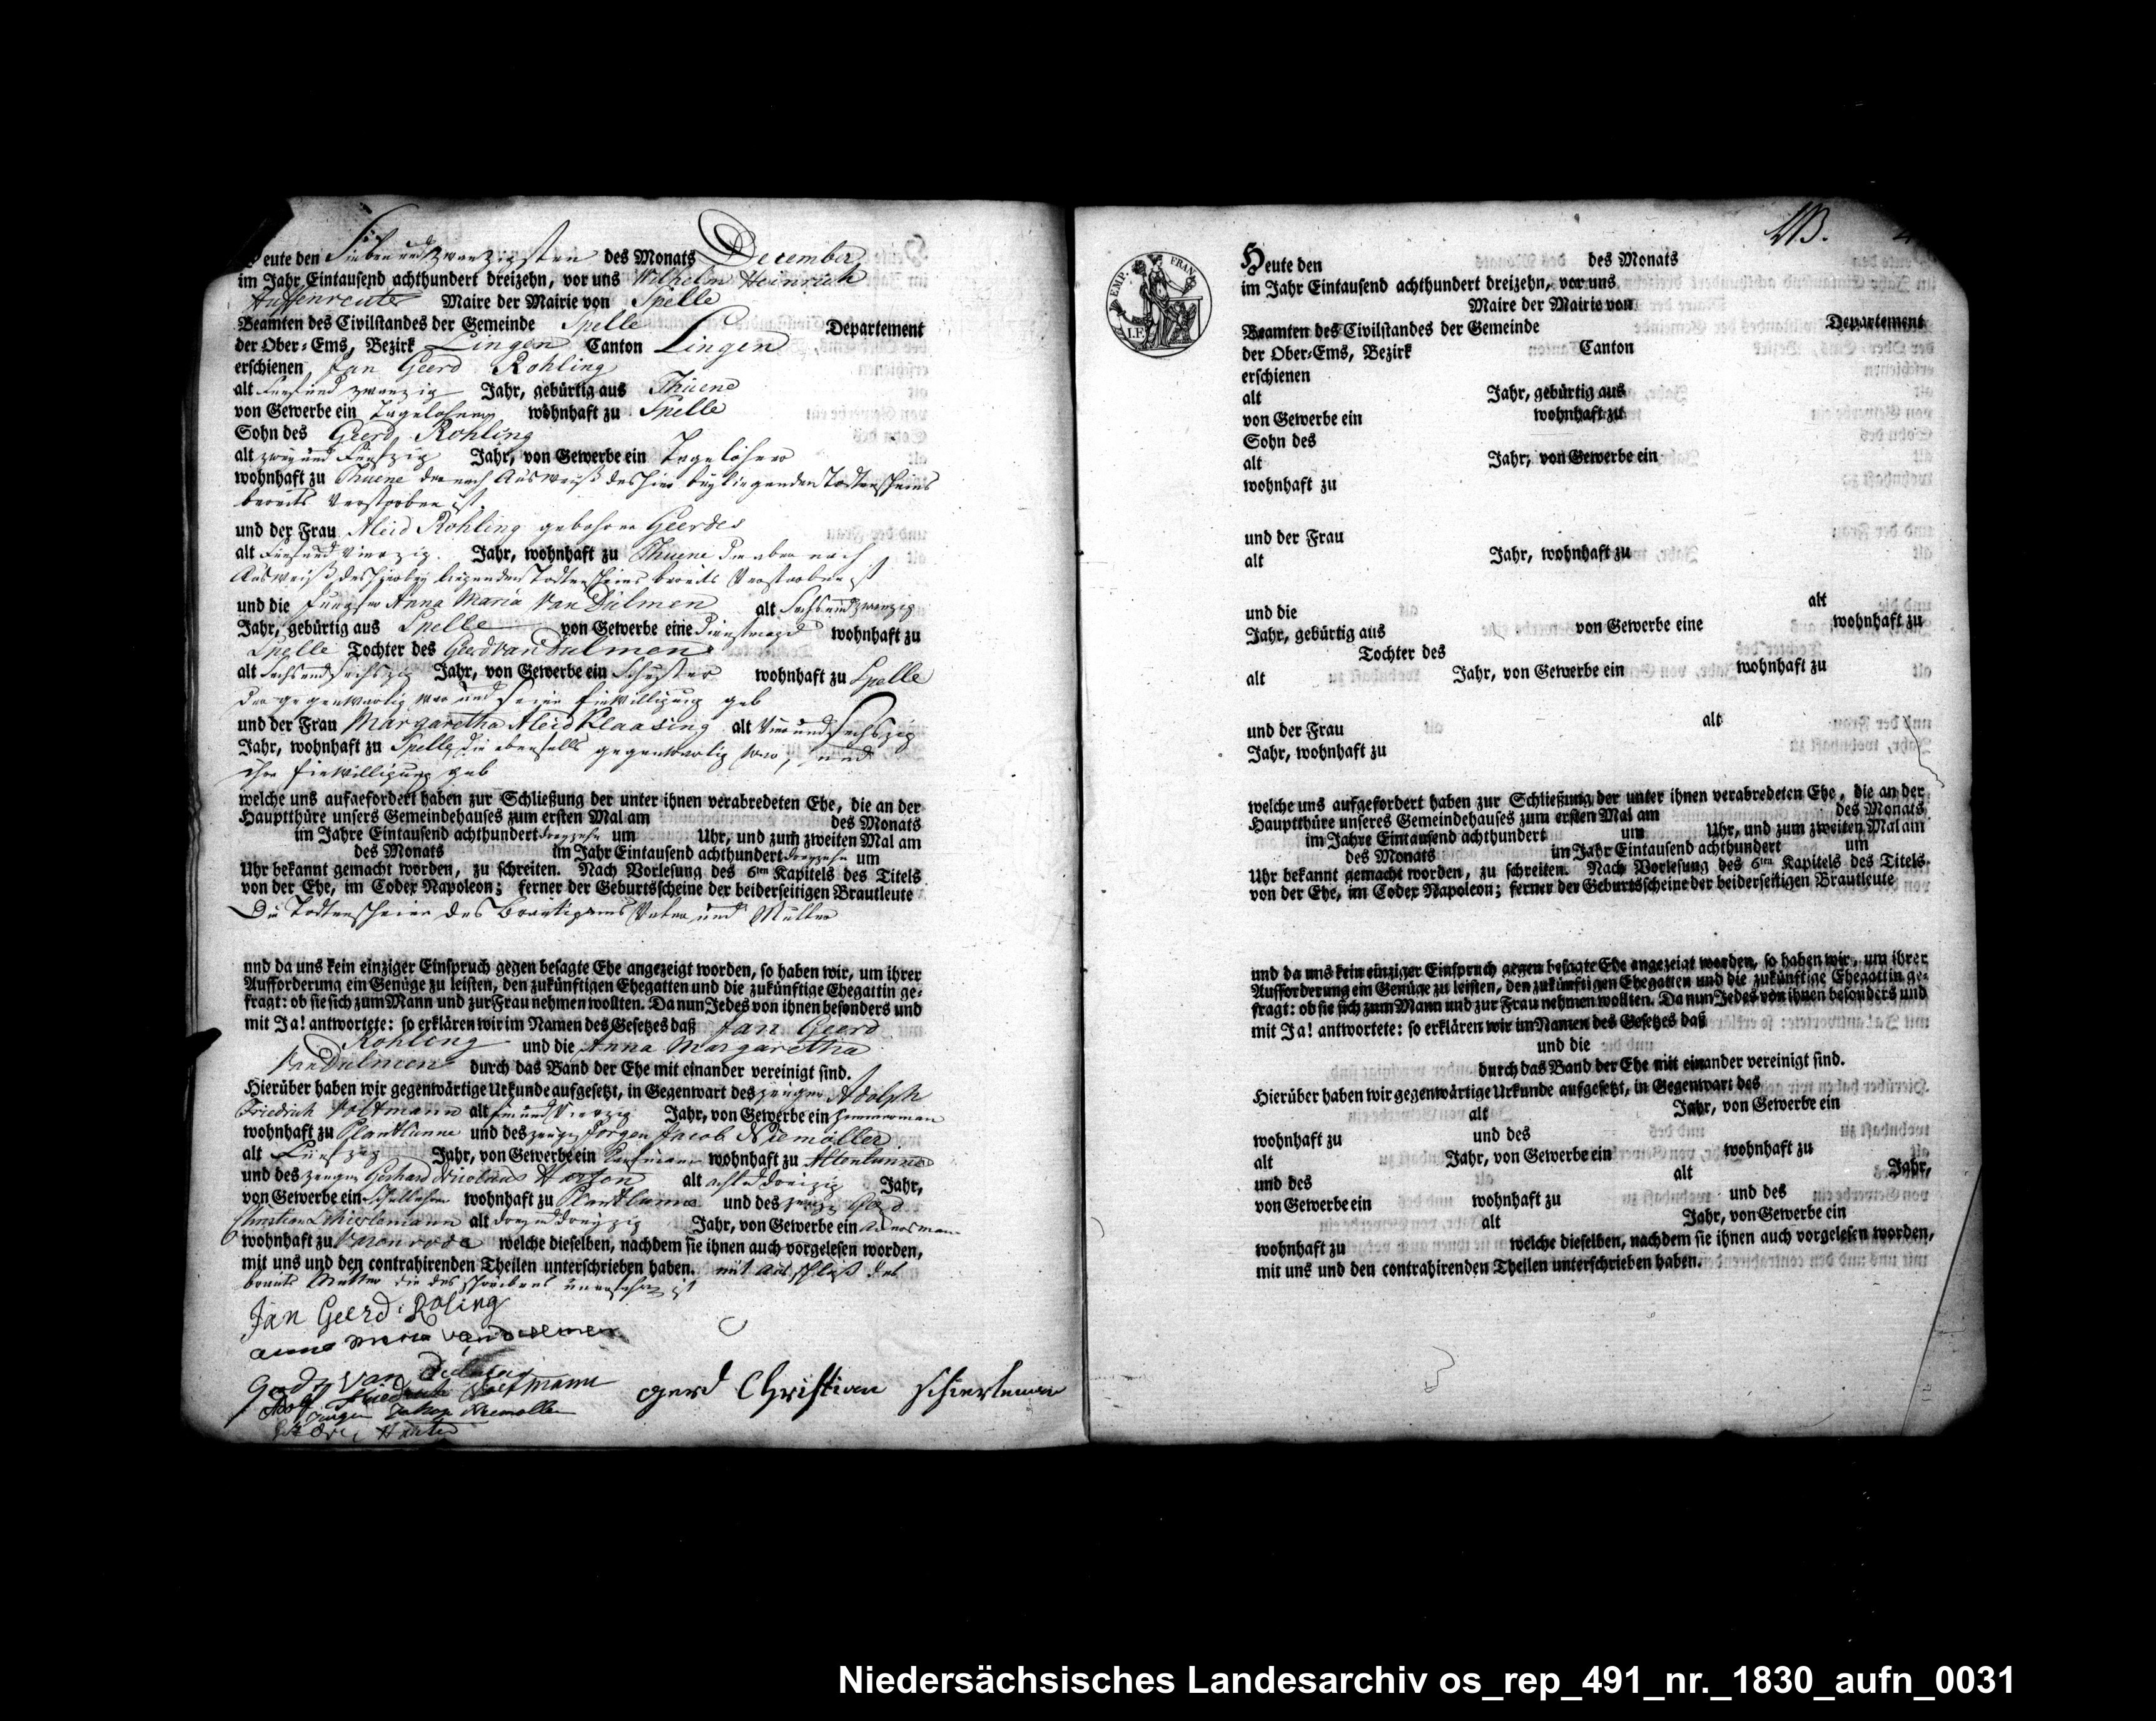 Heute den Sieben und zwanzigsten des Monats December
im Jahr Eintausend achthundert dreizehn, vor uns Wilhelm Heinrich
Maire der Mairie von Spelle
Beamten des Civilstandes der Gemeinde Spelle Departement
der Ober-Ems, Bezirk Lingen Canton Lingen
erschienen Jan Geerd Rohling
alt Fünf und zwanzig Jahr, gebürtig aus Thuene
von Gewerbe ein Tagelöhner wohnhaft zu Spelle
Sohn des Geerd Rohling
alt zwey und Funfzig Jahr, von Gewerbe ein Tagelöhner
wohnhaft zu Thuene der nach Ausweiß des hier beyliegenden Todtenscheins
bereits Verstorben ist.
und der Frau Aleid Rohling gebohrne Geerdes
alt Fünf und Vierzig. Jahr, wohnhaft zu Thuene die aber nach
Ausweiß des hierbey liegenden Todtenscheins bereits Verstorben ist
und die Jungfer Anna Maria Van Dülmen alt Sechs und zwanzig
Jahr, gebürtig aus Spelle von Gewerbe eine Dienstmagd wohnhaft zu
Spelle Tochter des Geerd van Dülmen
alt Sechs und Sechszig Jahr, von Gewerbe ein Schuster wohnhaft zu Spelle
der gegenwärtig war und seine Einwilligung gab
und der Frau Margaretha Aleid Klaasing alt Vier und Sechszig
Jahr, wohnhaft zu Spelle, die ebenfalls gegenwärtig war, und
ihre Einwilligung gab
welche uns aufgefordert haben zur Schließung der unter ihnen verabredeten Ehe, die an der
Hauptthüre unsers Gemeindehauses zum ersten Mal am des Monats
im Jahre Eintausend achthundert dreyzehn um Uhr, und zum zweiten Mal am
des Monats im Jahr Eintausend achthundert dreyzehn um
Uhr bekannt gemacht worden, zu schreiten. Nach Vorlesung des 6ten Kapitels des Titels
von der Ehe, im Codex Napoleon; ferner der Geburtsscheine der beiderseitigen Brautleute
Die Todtenscheine des Bräutigams Vater und Mutter
und da uns kein einziger Einspruch gegen besagte Ehe angezeigt worden, so haben wir, um ihrer
Aufforderung ein Genüge zu leisten, den zukünftigen Ehegatten und die zukünftige Ehegattin ge-
fragt: ob sie sich zum Mann und zur Frau nehmen wollten. Da nun Jedes von ihnen besonders und
mit Ja! antwortete: so erklären wir im Namen des Gesetzes daß Jan Geerd
Rohling und die Anna Margaretha
Van Dülmen durch das Band der Ehe mit einander vereinigt sind.
Hierüber haben wir gegenwärtige Urkunde aufgesetzt, in Gegenwart des zeugen Adolph
Friedrich Voltmann alt fünf und Vierzig Jahr, von Gewerbe ein Zimmerman
wohnhaft zu Plantlunne und des zeugen Jorgen Jacob Niemöller
alt Fünfzig Jahr, von Gewerbe ein Kaufmann wohnhaft zu Altenlunne
und des zeugen Gerhard Nicolaus alt acht u dreizig Jahr,
von Gewerbe ein wohnhaft zu Plantlunne und des zeugen Gerd
Christian Schierlemann alt drey u dreyzig Jahr, von Gewerbe ein Ackersman
wohnhaft zu Varenrode welche dieselben, nachdem sie ihnen auch vorgelesen worden,
mit uns und den contrahirenden Theilen unterschrieben haben. mit Ausschluß des
brauts Mutter die des schreibens unerfahren ist
Jan Geerd Roling
anna maria van dulmen
Gerd Van Dülmen
Adolf Friedrich Voltmann gerd Christian schierleman
Jürgen Jakop Niemoller
UB.
EMP. FRAN.
Heute den des Monats
im Jahr Eintausend achthundert dreizehn, vor uns
Maire der Mairie von
Beamten des Civilstandes der Gemeinde Departement
der Ober-Ems, Bezirk Canton
erschienen
alt Jahr, gebürtig aus
von Gewerbe ein wohnhaft zu
Sohn des
alt Jahr, von Gewerbe ein
wohnhaft zu
und der Frau
alt Jahr, wohnhaft zu
und die alt
Jahr, gebürtig aus von Gewerbe eine wohnhaft zu
Tochter des
alt Jahr, von Gewerbe ein wohnhaft zu
und der Frau alt
Jahr, wohnhaft zu
welche uns aufgefordert haben zur Schließung der unter ihnen verabredeten Ehe, die an der
Hauptthüre unseres Gemeindehauses zum ersten Mal am des Monats
im Jahre Eintausend achthundert um Uhr, und zum zweiten Mal am
des Monats im Jahr Eintausend achthundert um
Uhr bekannt gemacht worden, zu schreiten. Nach Vorlesung des 6ten Kapitels des Titels
von der Ehe, im Codex Napoleon; ferner der Geburtsscheine der beiderseitigen Brautleute
und da uns kein einziger Einspruch gegen besagte Ehe angezeigt worden, so haben wir, um ihrer
Aufforderung ein Genüge zu leisten, den zukünftigen Ehegatten und die zukünftige Ehegattin ge-
fragt: ob sie sich zum Mann und zur Frau nehmen wollten. Da nun Jedes von ihnen besonders und
mit Ja! antwortete: so erklären wir im Namen des Gesetzes daß
und die
durch das Band der Ehe mit einander vereinigt sind.
Hierüber haben wir gegenwärtige Urkunde aufgesetzt, in Gegenwart des
alt Jahr, von Gewerbe ein
wohnhaft zu und des
alt Jahr, von Gewerbe ein wohnhaft zu
und des alt Jahr,
von Gewerbe ein wohnhaft zu und des
alt Jahr, von Gewerbe ein
wohnhaft zu welche dieselben, nachdem sie ihnen auch vorgelesen worden,
mit uns und den contrahirenden Theilen unterschrieben haben.
Niedersächsisches Landesarchiv os_rep_491_nr._1830_aufn_0031